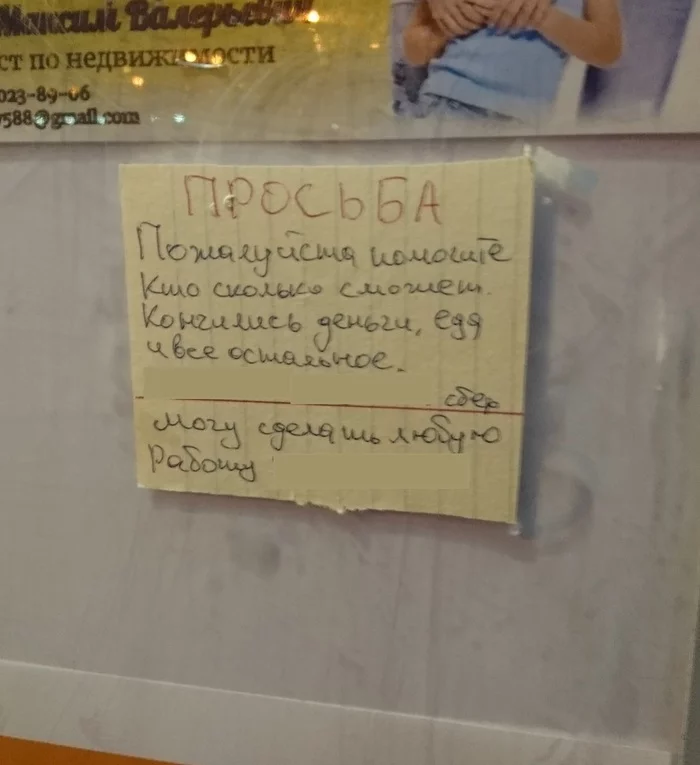 Максим Валерьевич
ст по недвижимости
023-89-06
7588@gmail.com
ПРОСЬБА
Пожалуйста помогите
Кто сколько сможет.
Кончились деньги, еда
и все остальное.
сбер
Могу сделать любую
Работу